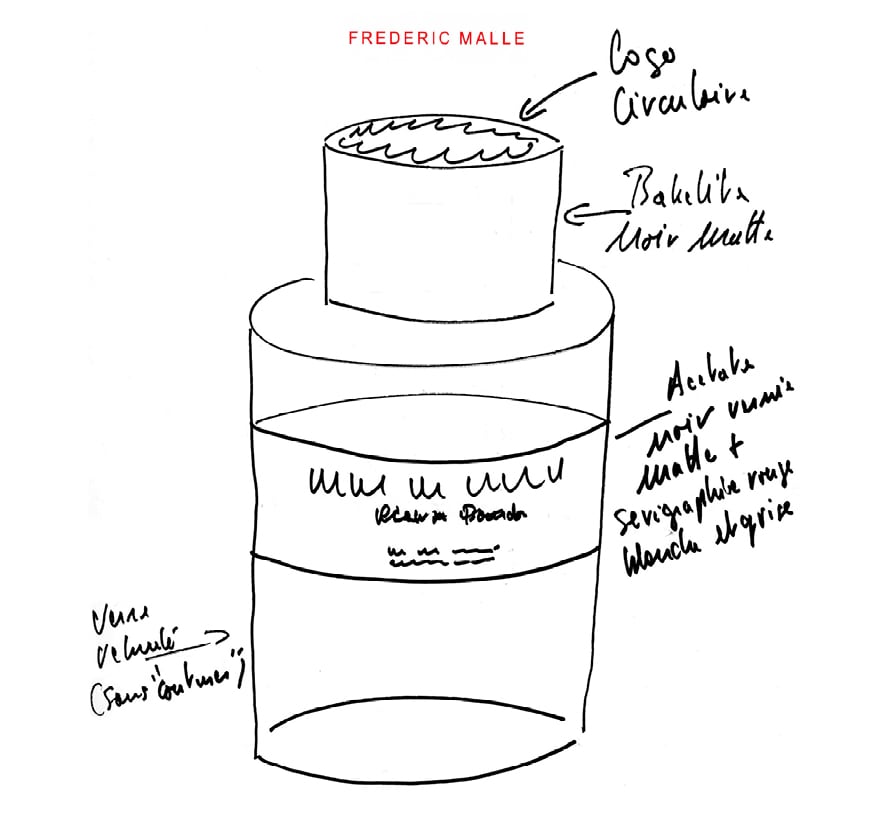 FREDERIC MALLE
Logo
Circulaire
Bakelite
Noir Matte
Acetate
noir vernie
matte +
serigraphie rouge
blanche et grise
Verre
(sans "coutures")